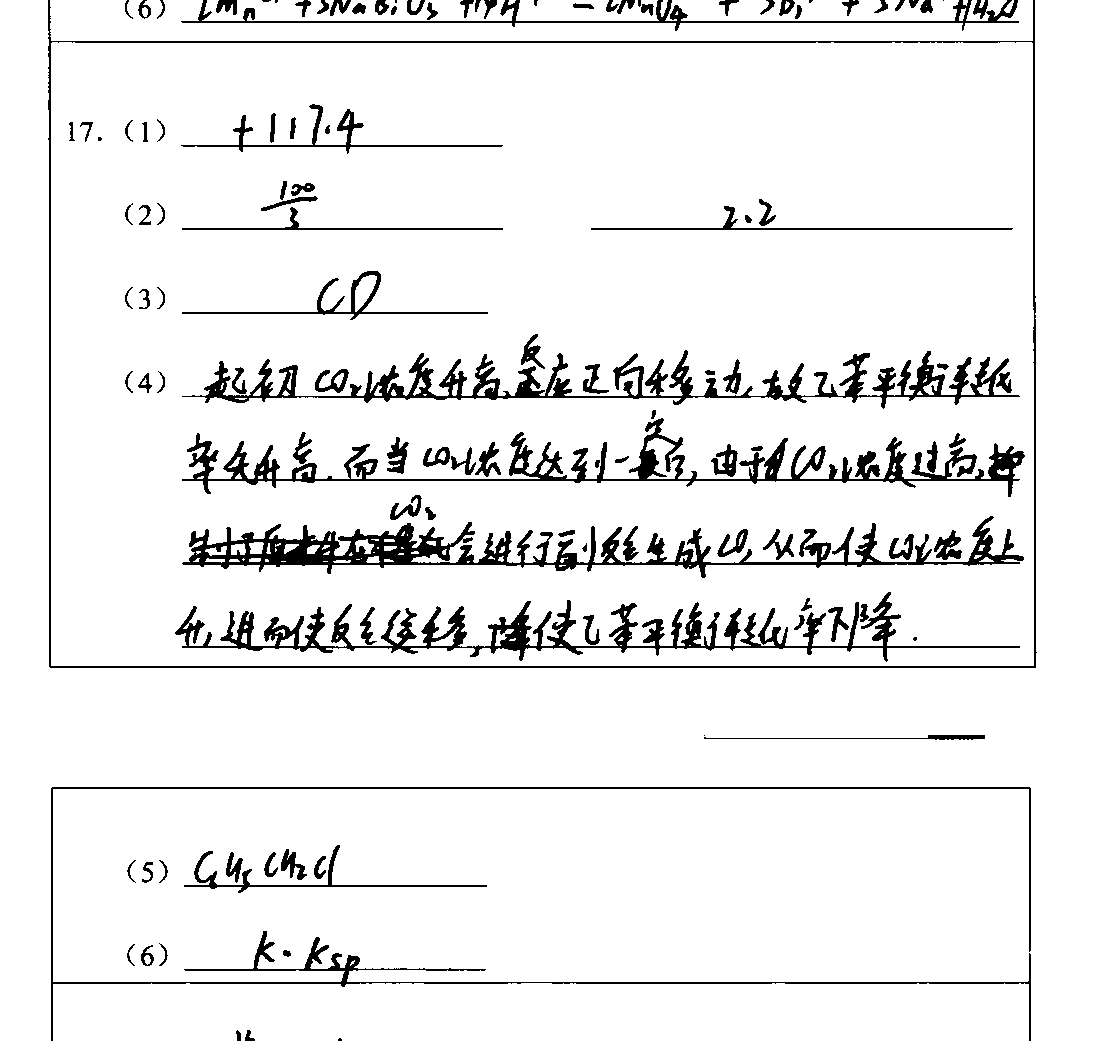 (6) 2Mn²⁺ + 5NaBiO₃ + 14H⁺ = 2MnO₄⁻ + 5Bi³⁺ + 5Na⁺ + 7H₂O
17.(1) +117.4
(2) 100/3 2.2
(3) CD
(4) 起初CO₂浓度升高,反应正向移动,故乙苯平衡转化
率先升高.而当CO₂浓度达到一定后,由于CO₂浓度过高,
CO₂会进行副反应生成CO,从而使CO浓度上
升,进而使反应逆移,使乙苯平衡转化率下降.
(5) C₆H₅CH₂Cl
(6) K·Ksp